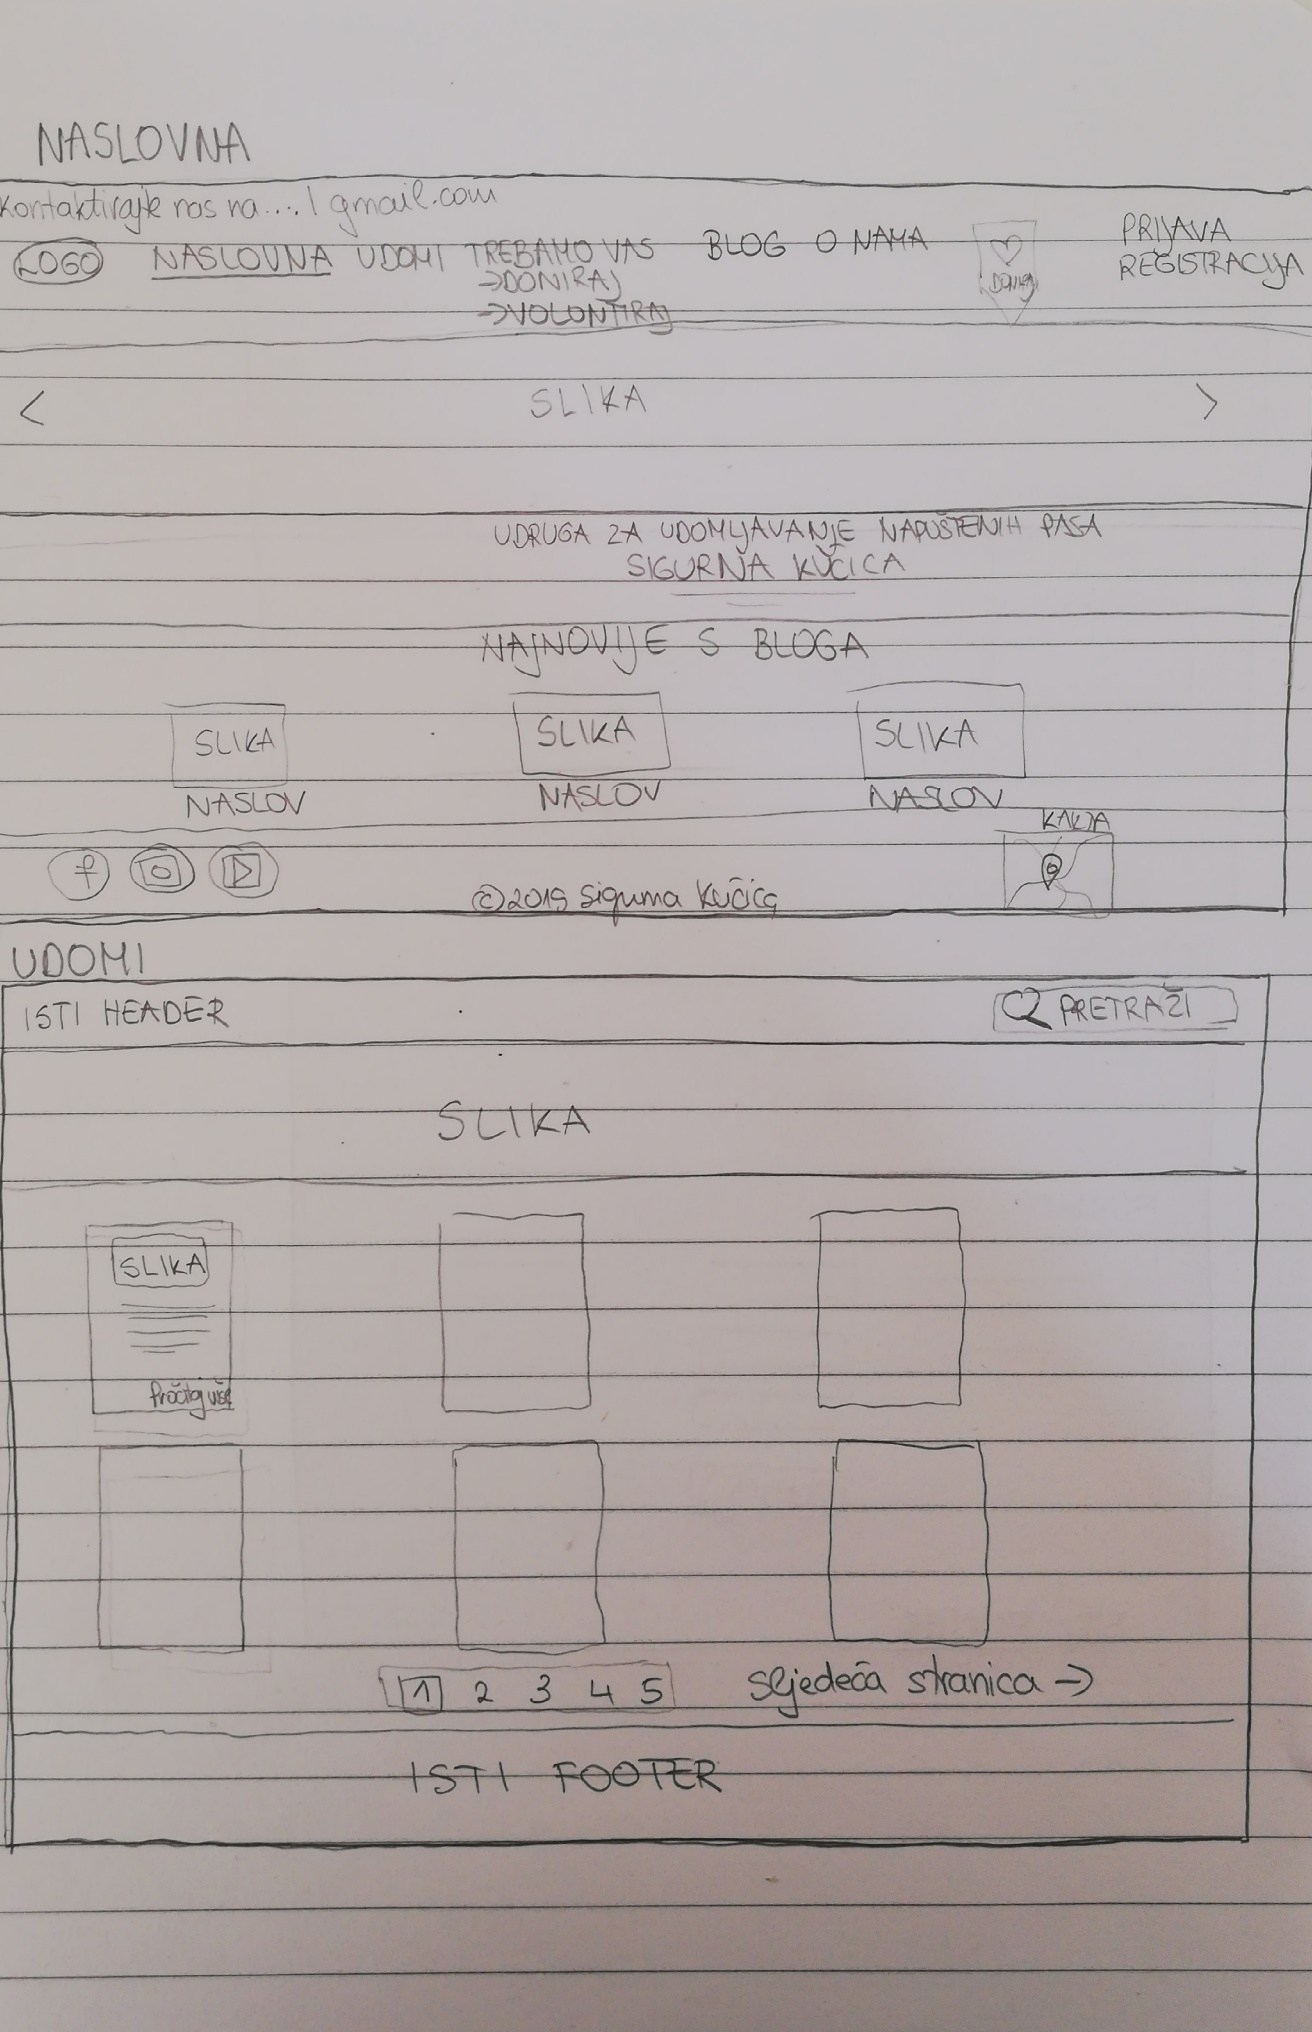 NASLOVNA
Kontaktirajte nas na.... / gmail.com
LOGO NASLOVNA UDOMI TREBAMO VAS BLOG O NAMA
→DONIRAJ
→VOLONTIRAJ
DONIRAJ
PRIJAVA
REGISTRACIJA
< SLIKA >
UDRUGA ZA UDOMLJAVANJE NAPUŠTENIH PASA
SIGURNA KUČICA
NAJNOVIJE S BLOGA
SLIKA SLIKA SLIKA
NASLOV NASLOV NASLOV
KARTA
f
©2019 Sigurna Kučica
UDOMI
ISTI HEADER PRETRAŽI
SLIKA
SLIKA
Pročitaj više
1 2 3 4 5 sljedeća stranica →
ISTI FOOTER